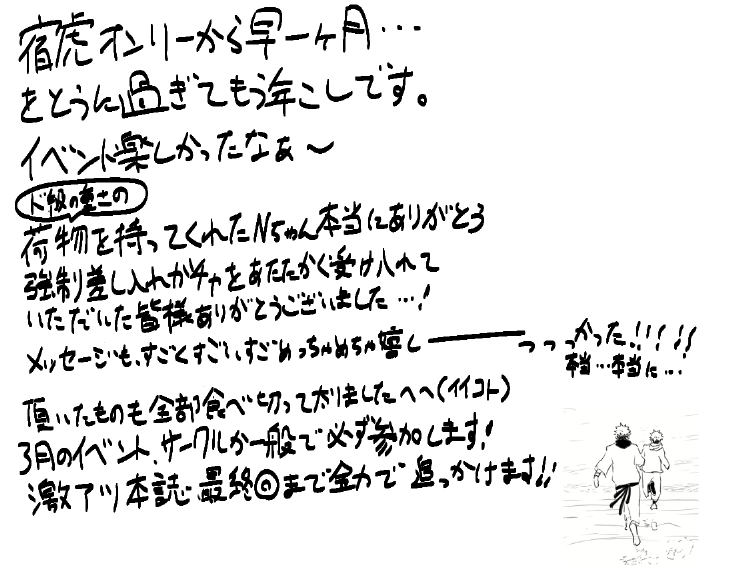 宿虎オンリーから早一ヶ月…
をとうに過ぎてもう年こしです。
イベント楽しかったなぁ〜
ド級の重さの
荷物を持ってくれたNちゃん本当にありがとう
強制差し入れガチャをあたたかく受け入れて
いただいた皆様ありがとうございました…!
メッセージも、すごくすごいすごめっちゃめちゃ嬉し━━━っっっかった!!!!!
本当…本当に…
頂いたものも全部食べ切って太りましたへへ(イイコト)
3月のイベント、サークルか一般で必ず参加します!
激アツ本誌 最終回まで全力で追っかけます!!